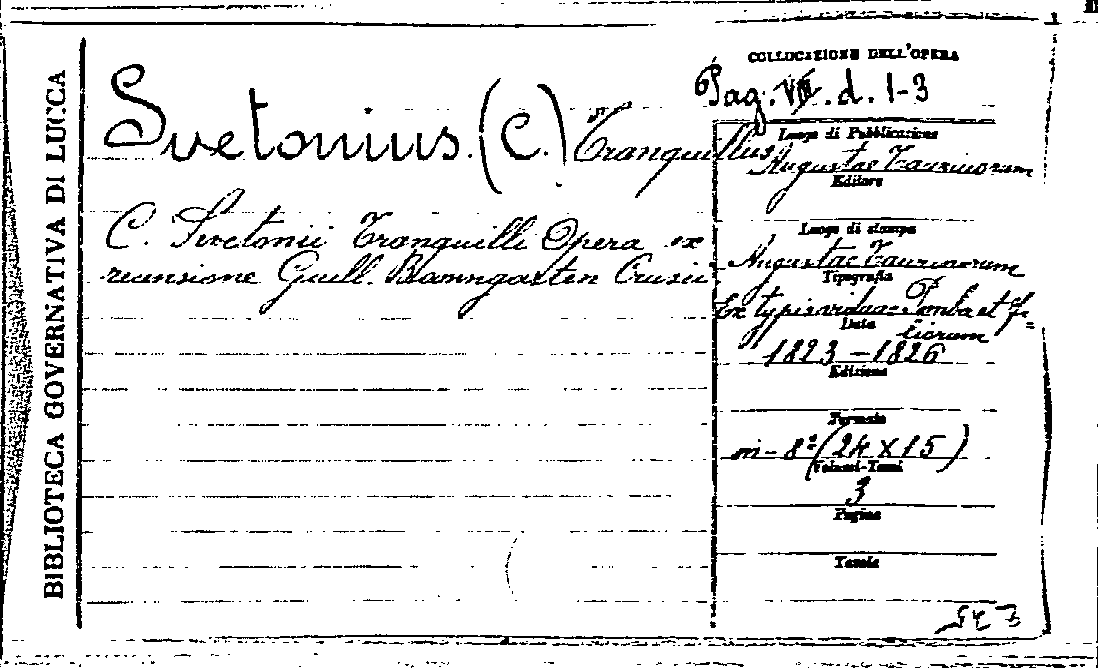 BIBLIOTECA GOVERNATIVA DI LUCCA
Svetonius (C.) Tranquillus
C. Svetonii Tranquilli Opera ex
recensione Guill. Baumgarten Crusii.
COLLOCAZIONE DELL'OPERA
Pag. VII. d. 1-3
Luogo di Pubblicazione
Augustae Taurinorum
Editore
Luogo di stampa
Augustae Taurinorum
Tipografia
Ex typis viduae Pomba et fi=
liorum
Data
1823-1826
Edizione
Formato
in-8° (24 X 15)
Volumi-Tomi
3
Pagine
Tavole